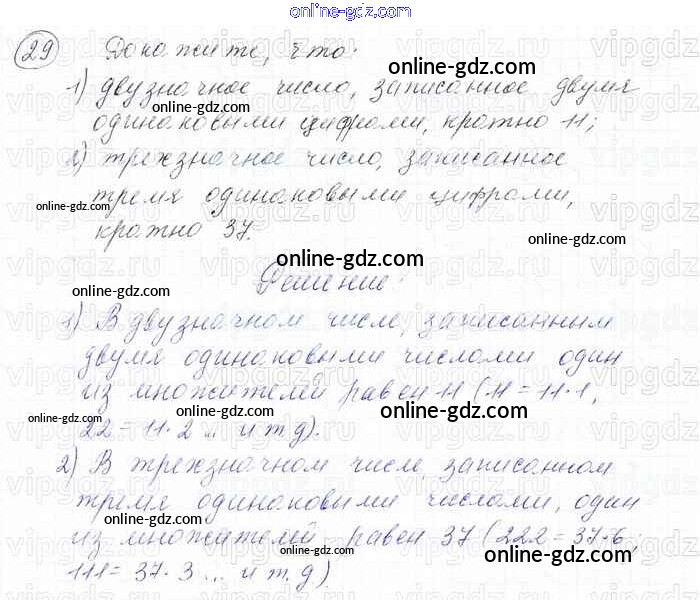 online-gdz.com
29 Докажите, что:
online-gdz.com
1) двузначное число, записанное двумя
online-gdz.com
одинаковыми цифрами, кратно 11;
online-gdz.com
2) трехзначное число, записанное
тремя одинаковыми цифрами,
online-gdz.com
кратно 37.
online-gdz.com
online-gdz.com
Решение:
online-gdz.com
1) В двузначном числе, записанным
online-gdz.com
двумя одинаковыми числами один
из множителей равен 11 (11 = 11·1,
online-gdz.com online-gdz.com online-gdz.com
22 = 11·2 ... и т.д).
2) В трехзначном числе, записанном
тремя одинаковыми числами, один
online-gdz.com
из множителей равен 37 (222 = 37·6;
online-gdz.com online-gdz.com
111 = 37·3 ... и т.д)
online-gdz.com
vipgdz.ru